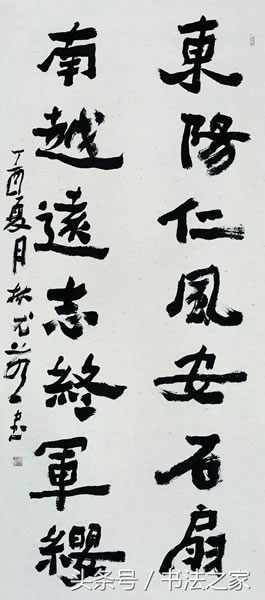 東陽仁風安石扇
南越遠志終軍纓
丁酉夏月
头条号 / 书法之家